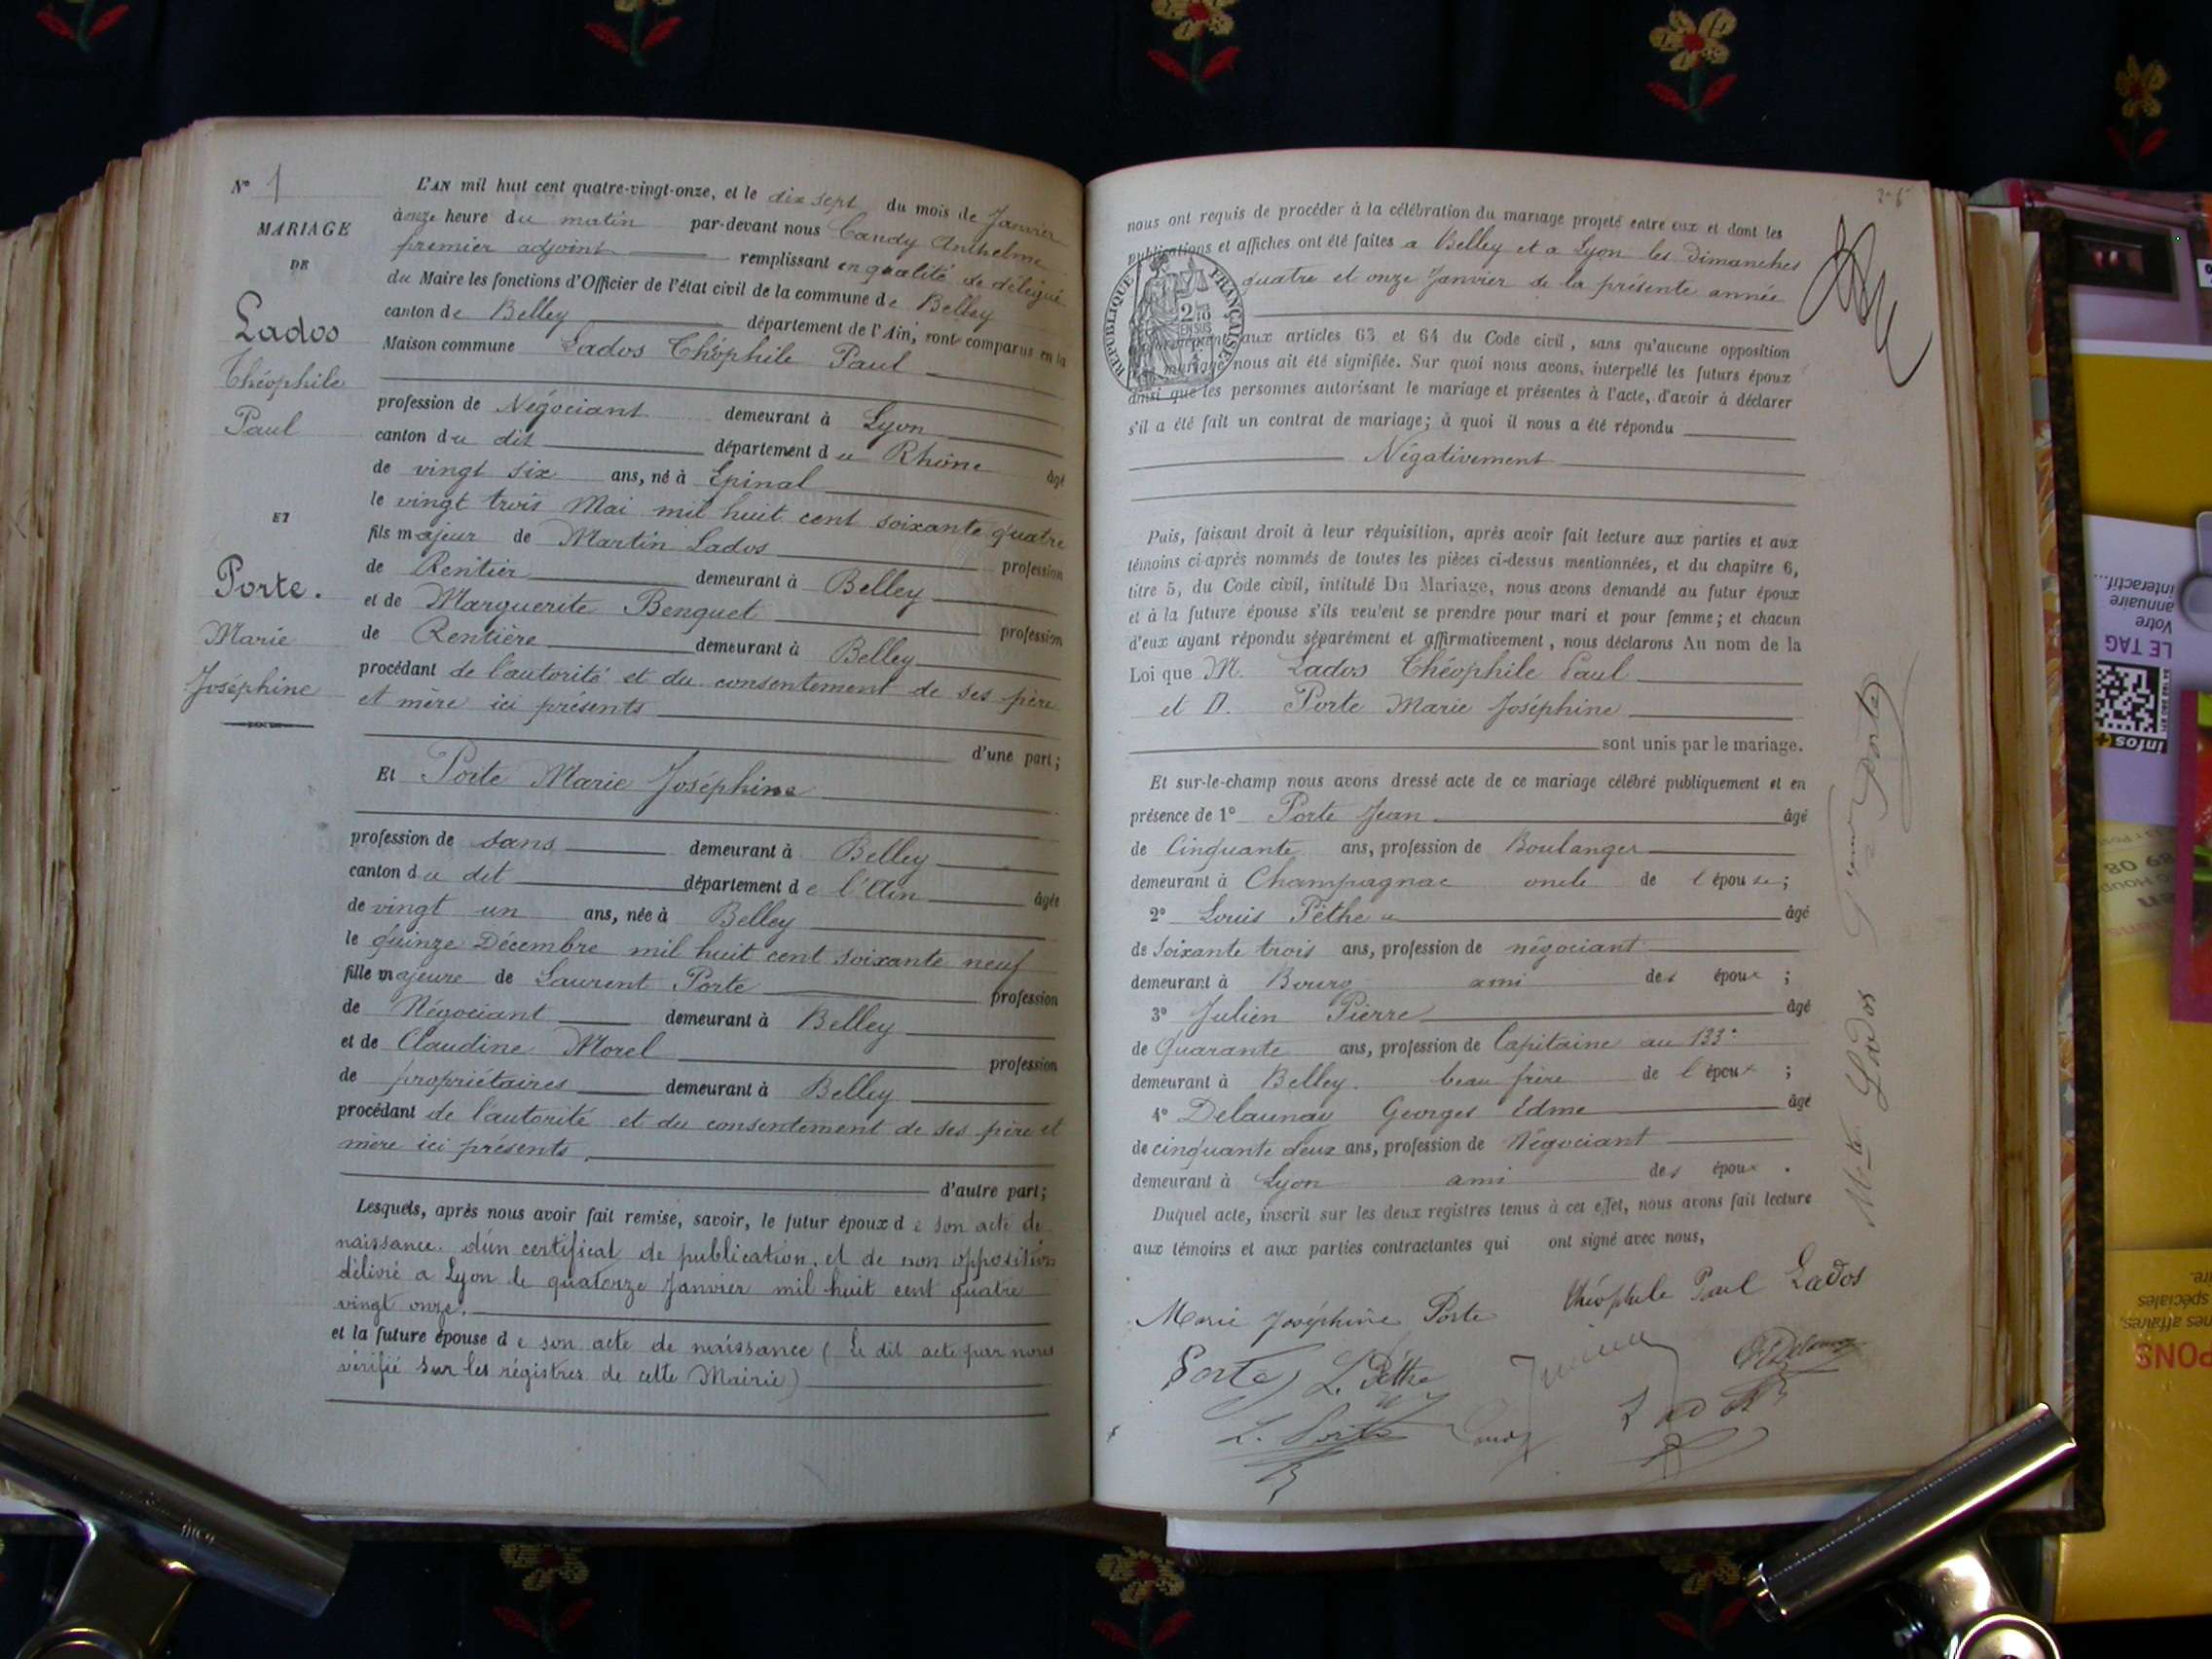 N° 1
MARIAGE
DE
Lados
Théophile
Paul
ET
Porte.
Marie
Joséphine
L'AN mil huit cent quatre-vingt-onze, et le dix sept du mois de Janvier
à onze heure du matin par-devant nous Candy Anthelme
premier adjoint remplissant en qualité de délégué
du Maire les fonctions d'Officier de l'état civil de la commune de Belley
canton de Belley département de l'Ain, sont comparus en la
Maison commune Lados Théophile Paul
profession de Négociant demeurant à Lyon
canton du dit département du Rhône âgé
de vingt six ans, né à Epinal
le vingt trois Mai mil huit cent soixante quatre
fils majeur de Martin Lados profession
de Rentier demeurant à Belley
et de Marguerite Benquet profession
de Rentière demeurant à Belley
procédant de l'autorité et du consentement de ses père
et mère ici présents
d'une part;
Et Porte Marie Joséphine
profession de sans demeurant à Belley
canton du dit département de l'Ain âgée
de vingt un ans, née à Belley
le quinze Décembre mil huit cent soixante neuf
fille majeure de Laurent Porte profession
de Négociant demeurant à Belley
et de Claudine Morel profession
de propriétaires demeurant à Belley
procédant de l'autorité et du consentement de ses père et
mère ici présents.
d'autre part;
Lesquels, après nous avoir fait remise, savoir, le futur époux de son acte de
naissance. d'un certificat de publication. et de non opposition
délivré a Lyon le quatorze Janvier mil huit cent quatre
vingt onze.
et la future épouse de son acte de naissance (Le dit acte par nous
vérifié sur les régistres de cette Mairie)
nous ont requis de procéder à la célébration du mariage projeté entre eux et dont les
publications et affiches ont été faites a Belley et a Lyon les Dimanches
quatre et onze Janvier de la présente année
RÉPUBLIQUE FRANÇAISE
aux articles 63 et 64 du Code civil, sans qu'aucune opposition
mariage nous ait été signifiée. Sur quoi nous avons, interpellé les futurs époux
ainsi que les personnes autorisant le mariage et présentes à l'acte, d'avoir à déclarer
s'il a été fait un contrat de mariage; à quoi il nous a été répondu
Négativement
Puis, faisant droit à leur réquisition, après avoir fait lecture aux parties et aux
témoins ci-après nommés de toutes les pièces ci-dessus mentionnées, et du chapitre 6,
titre 5, du Code civil, intitulé Du Mariage, nous avons demandé au futur époux
et à la future épouse s'ils veulent se prendre pour mari et pour femme; et chacun
d'eux ayant répondu séparément et affirmativement, nous déclarons Au nom de la
Loi que M. Lados Théophile Paul
et D. Porte Marie Joséphine
sont unis par le mariage.
Et sur-le-champ nous avons dressé acte de ce mariage célébré publiquement et en
présence de 1° Porte Jean âgé
de Cinquante ans, profession de Boulanger
demeurant à Champagnac oncle de l'épouse;
2° Louis Pèthe âgé
de Soixante trois ans, profession de négociant
demeurant à Bourg ami des époux;
3° Julien Pierre âgé
de Quarante ans, profession de Capitaine au 133e
demeurant à Belley. beau frère de l'époux;
4° Delaunay Georges Edme âgé
de cinquante deux ans, profession de Négociant
demeurant à Lyon ami des époux.
Duquel acte, inscrit sur les deux registres tenus à cet effet, nous avons fait lecture
aux témoins et aux parties contractantes qui ont signé avec nous,
Marie Joséphine Porte Théophile Paul Lados
Porte L. Pèthe
L. Porte Candy Lados
Lados
Porte
LE TAG
Votre
annuaire
interactif...
infos+